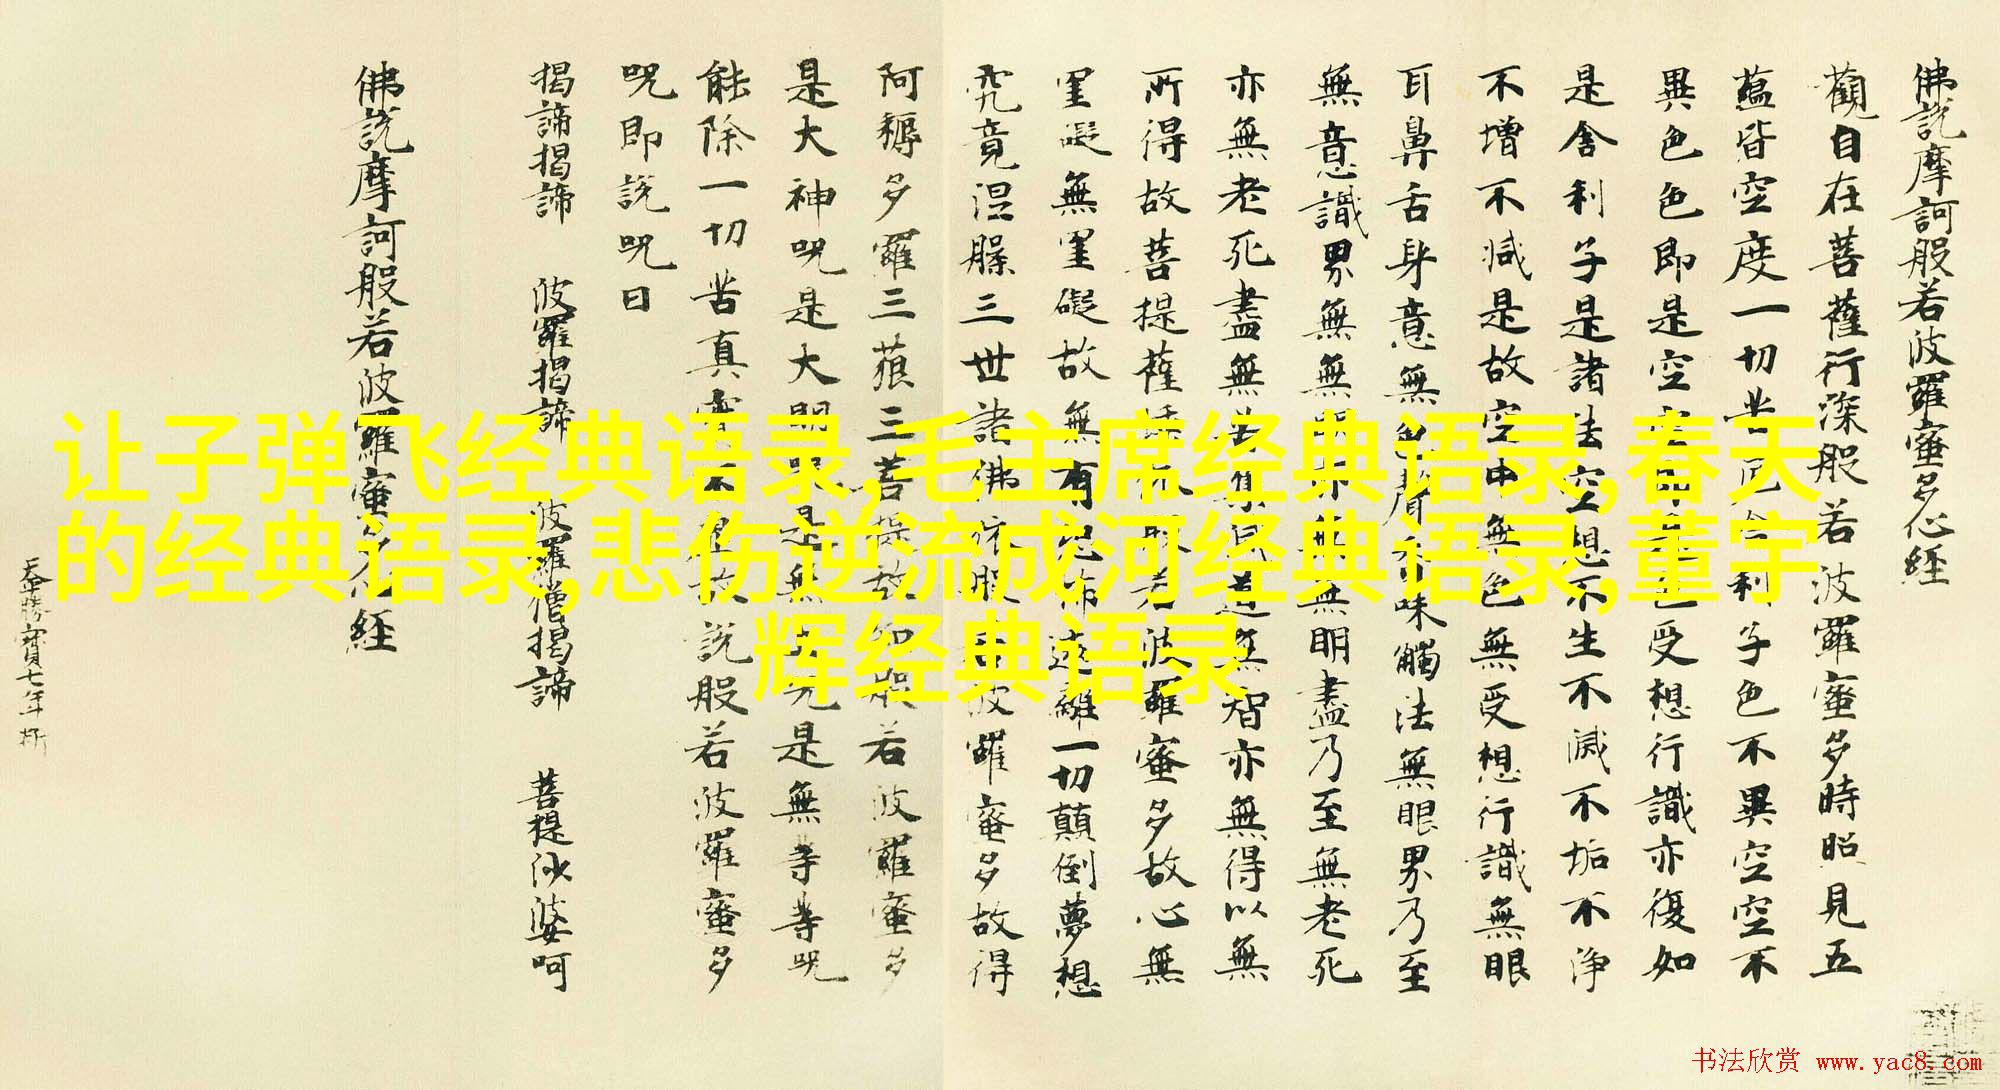 佛說摩訶般若波羅蜜多心經
觀自在菩薩行深般若波羅蜜多時照見五
蘊皆空度一切苦厄舍利子色不異空空不
異色色即是空空即是色受想行識亦復如
是舍利子是諸法空想不生不滅不垢不淨
不增不減是故空中無色無受想行識無眼
耳鼻舌身意無色聲香味觸法無眼界乃至
無意識界無無明亦無無明盡乃至無老死
亦無老死盡無苦集滅道無智亦無得以無
所得故菩提薩埵依般若波羅蜜多故心無
罣礙無罣礙故無有恐怖遠離一切顛倒夢想
究竟涅槃三世諸佛依般若波羅蜜多故得
阿耨多羅三藐三菩提故知般若波羅蜜多
是大神咒是大明咒是無上咒是無等等咒
能除一切苦真實不虛故說般若波羅蜜多
咒即說咒曰
揭諦揭諦 波羅揭諦 波羅僧揭諦 菩提沙婆呵
佛說摩訶般若波羅蜜多心經
勝寶七年
让子弹飞经典语录,毛主席经典语录,春天
的经典语录,悲伤逆流成河经典语录,董宇
辉经典语录
书法欣赏 www.yac8.com